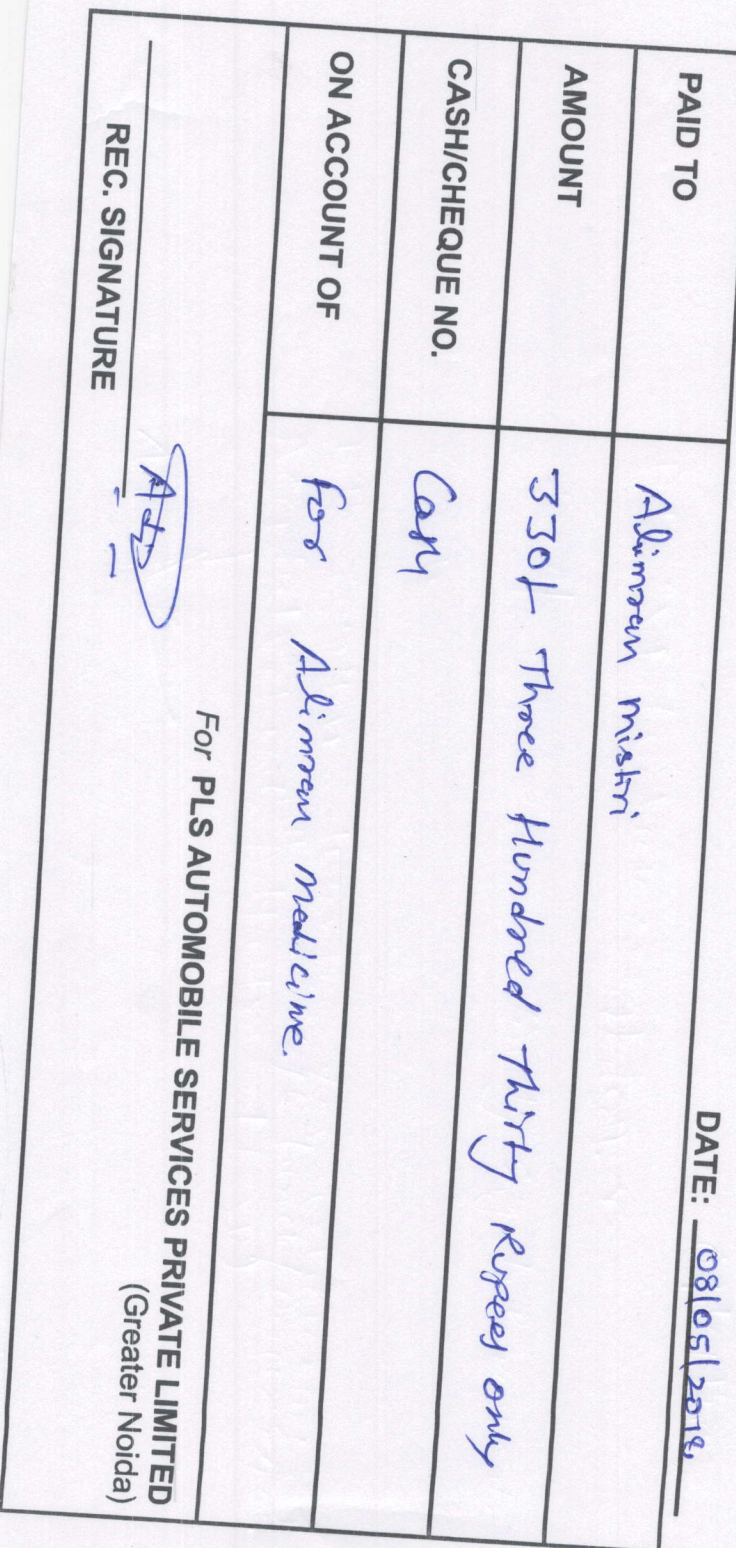 DATE: 08/05/2018
PAID TO Alimran mistri
AMOUNT 330/- Three Hundred Thirty Rupees only
CASH/CHEQUE NO. Cash
ON ACCOUNT OF for Alimran medicine.
For PLS AUTOMOBILE SERVICES PRIVATE LIMITED
(Greater Noida)
REC. SIGNATURE